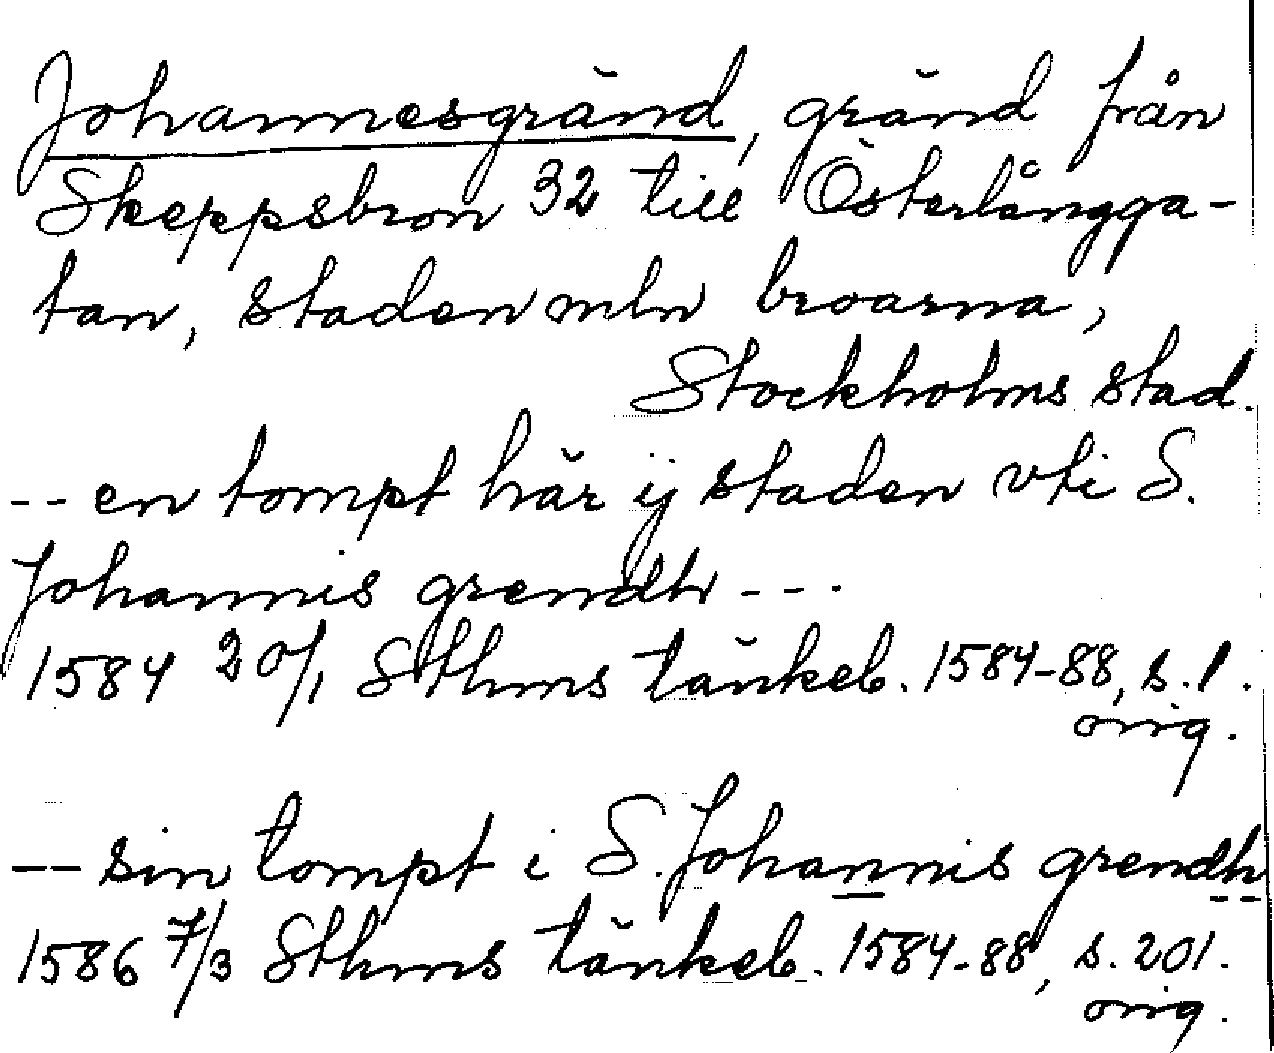 Johannesgränd, gränd från
Skeppsbron 32 till Österlångga-
tan, staden mln broarna,
Stockholms stad.
-- en tompt här ij staden vti S.
Johannis grendh ---.
1584 20/1 Sthms tänkeb. 1584-88, s. 1.
orig.
-- sin tompt i S. Johannis grendh
1586 7/3 Sthms tänkeb. 1584-88, s. 201.
orig.